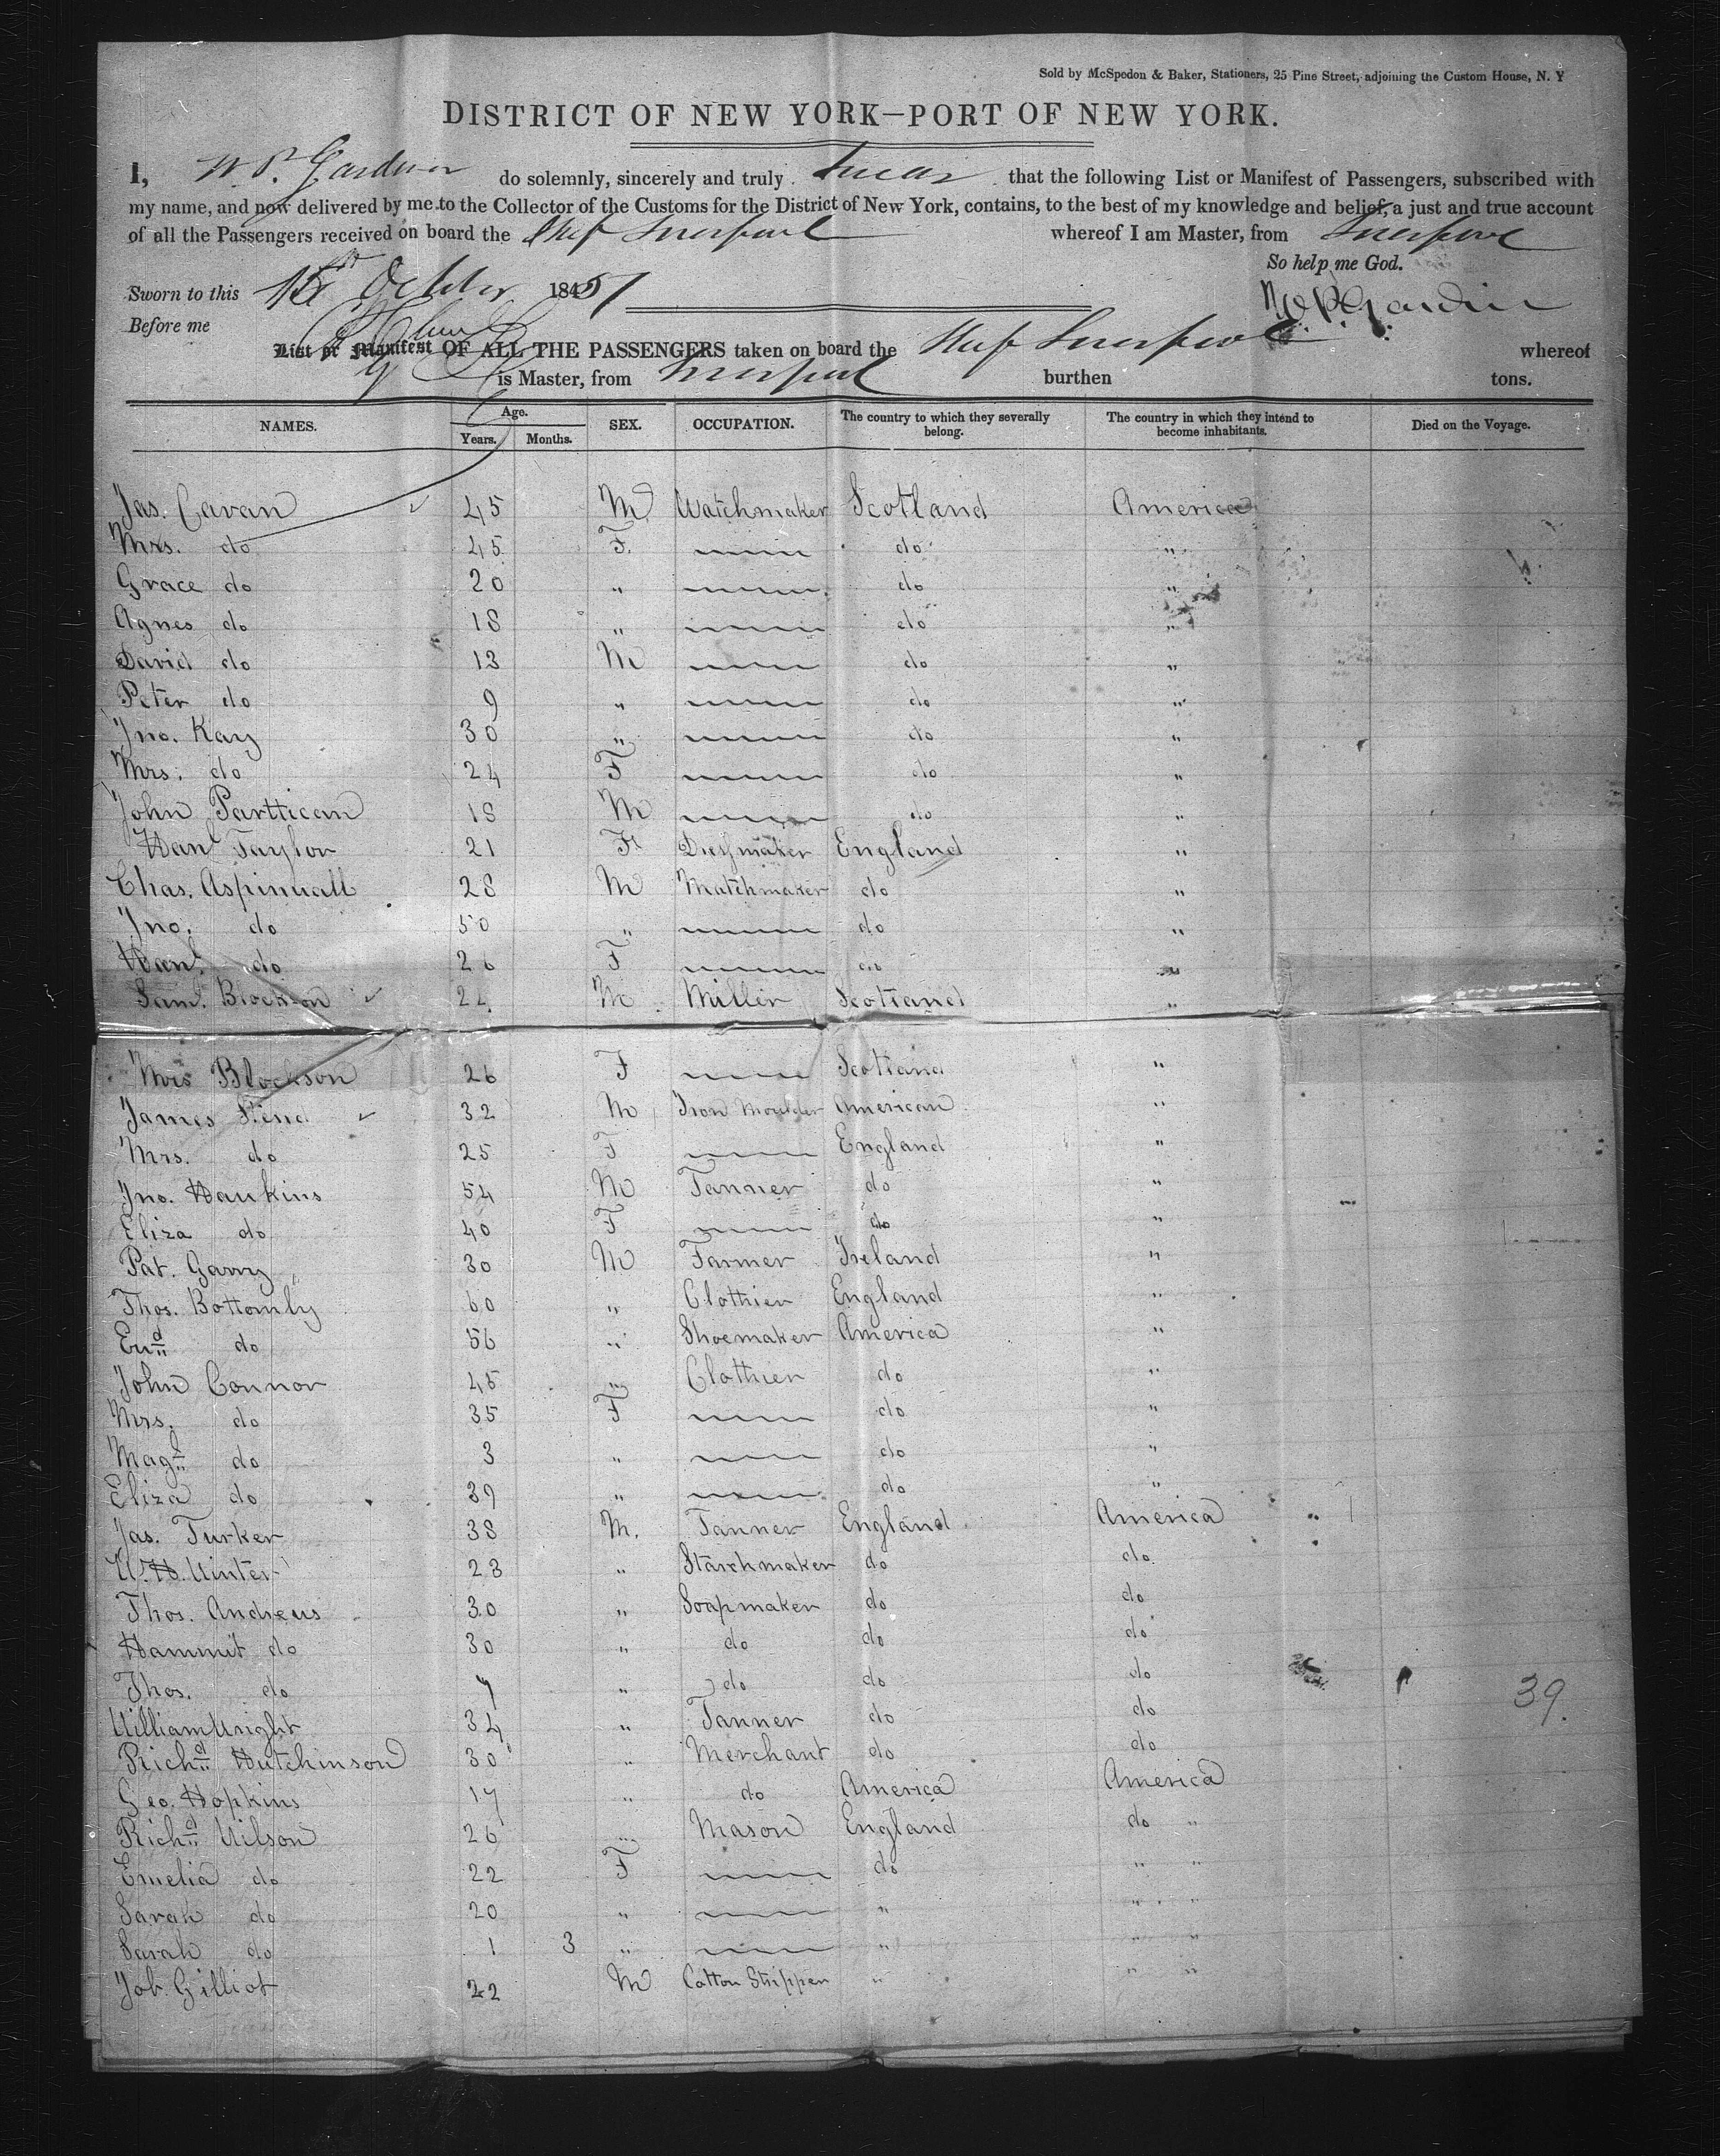 Sold by McSpedon & Baker, Stationers, 25 Pine Street, adjoining the Custom House, N. Y
DISTRICT OF NEW YORK—PORT OF NEW YORK.
I, W. P. Gardner do solemnly, sincerely and truly swear that the following List or Manifest of Passengers, subscribed with
my name, and now delivered by me to the Collector of the Customs for the District of New York, contains, to the best of my knowledge and belief, a just and true account
of all the Passengers received on board the Ship Liverpool whereof I am Master, from Liverpool
So help me God.
Sworn to this 15 October 1851
Before me
List or Manifest OF ALL THE PASSENGERS taken on board the Ship Liverpool whereof
is Master, from Liverpool burthen tons.
NAMES. Age. Years. Months. SEX. OCCUPATION. The country to which they severally belong. The country in which they intend to become inhabitants. Died on the Voyage.
Jas. Cavan 45 M Watchmaker Scotland America
Mrs. do 45 F. do "
Grace do 20 " do "
Agnes do 18 " do "
David do 13 M do "
Peter do 9 " do "
Jno. Kay 30 " do "
Mrs. do 24 F do "
John Partican 18 M do "
Hanh Taylor 21 F Dressmaker England "
Chas. Aspinwall 28 M Watchmaker do "
Jno. do 50 " do "
Hanh do 26 F do "
Saml. Blockson 24 M Miller Scotland "
Mrs Blockson 26 F Scotland "
James 32 M Iron Moulder American "
Mrs. do 25 F England "
Jno. Hawkins 54 M Tanner do "
Eliza do 40 F do "
Pat. Garry 30 M Farmer Ireland "
Thos. Bottomly 60 " Clothier England "
do 56 " Shoemaker America "
John Connor 45 " Clothier do "
Mrs. do 35 F do "
Magt do 3 " do "
Eliza do 39 " do "
Jas. Turker 38 M. Tanner England America
W. H. Winter 23 " Starchmaker do do
Thos. Andrews 30 " Soapmaker do do
Hammit do 30 " do do do
Thos. do 7 " do do do
39.
William Wright 34 " Tanner do do
Richd Hutchinson 30 " Merchant do do
Geo. Hopkins 17 " do America America
Richd Wilson 26 " Mason England do "
Emelia do 22 F do " "
Sarah do 20 " " " "
Sarah do 1 3 " " " "
Job. Gilliot 22 M Cotton Stripper " " "